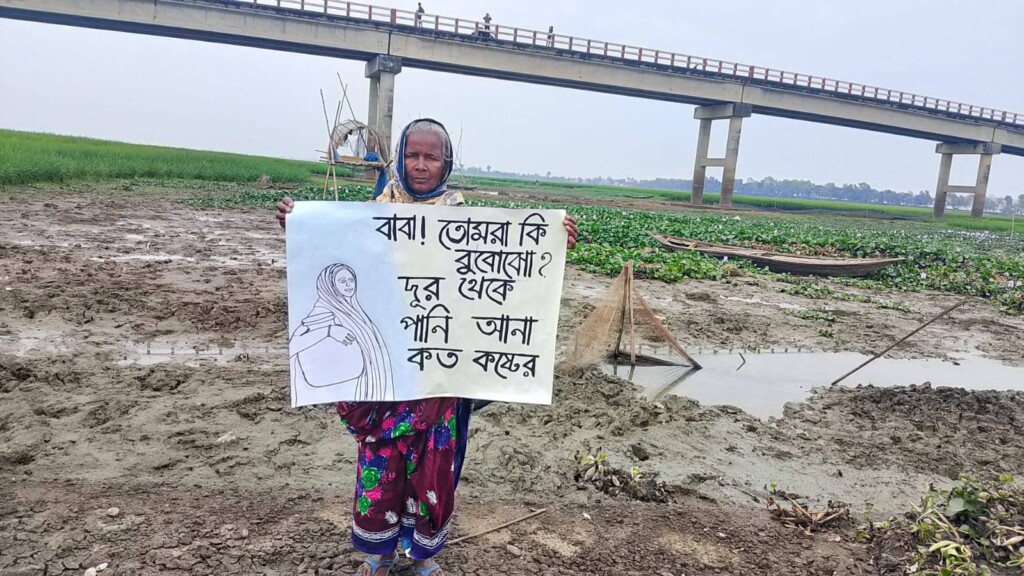 বাবা! তোমরা কি
বুঝোঝো?
দূর থেকে
পানি আনা
কত কষ্টের